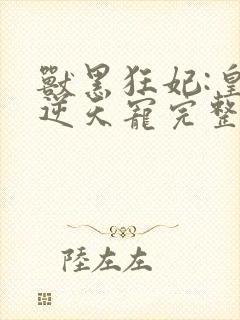 獸黑狂妃:皇
逆天寵完整
陸左左